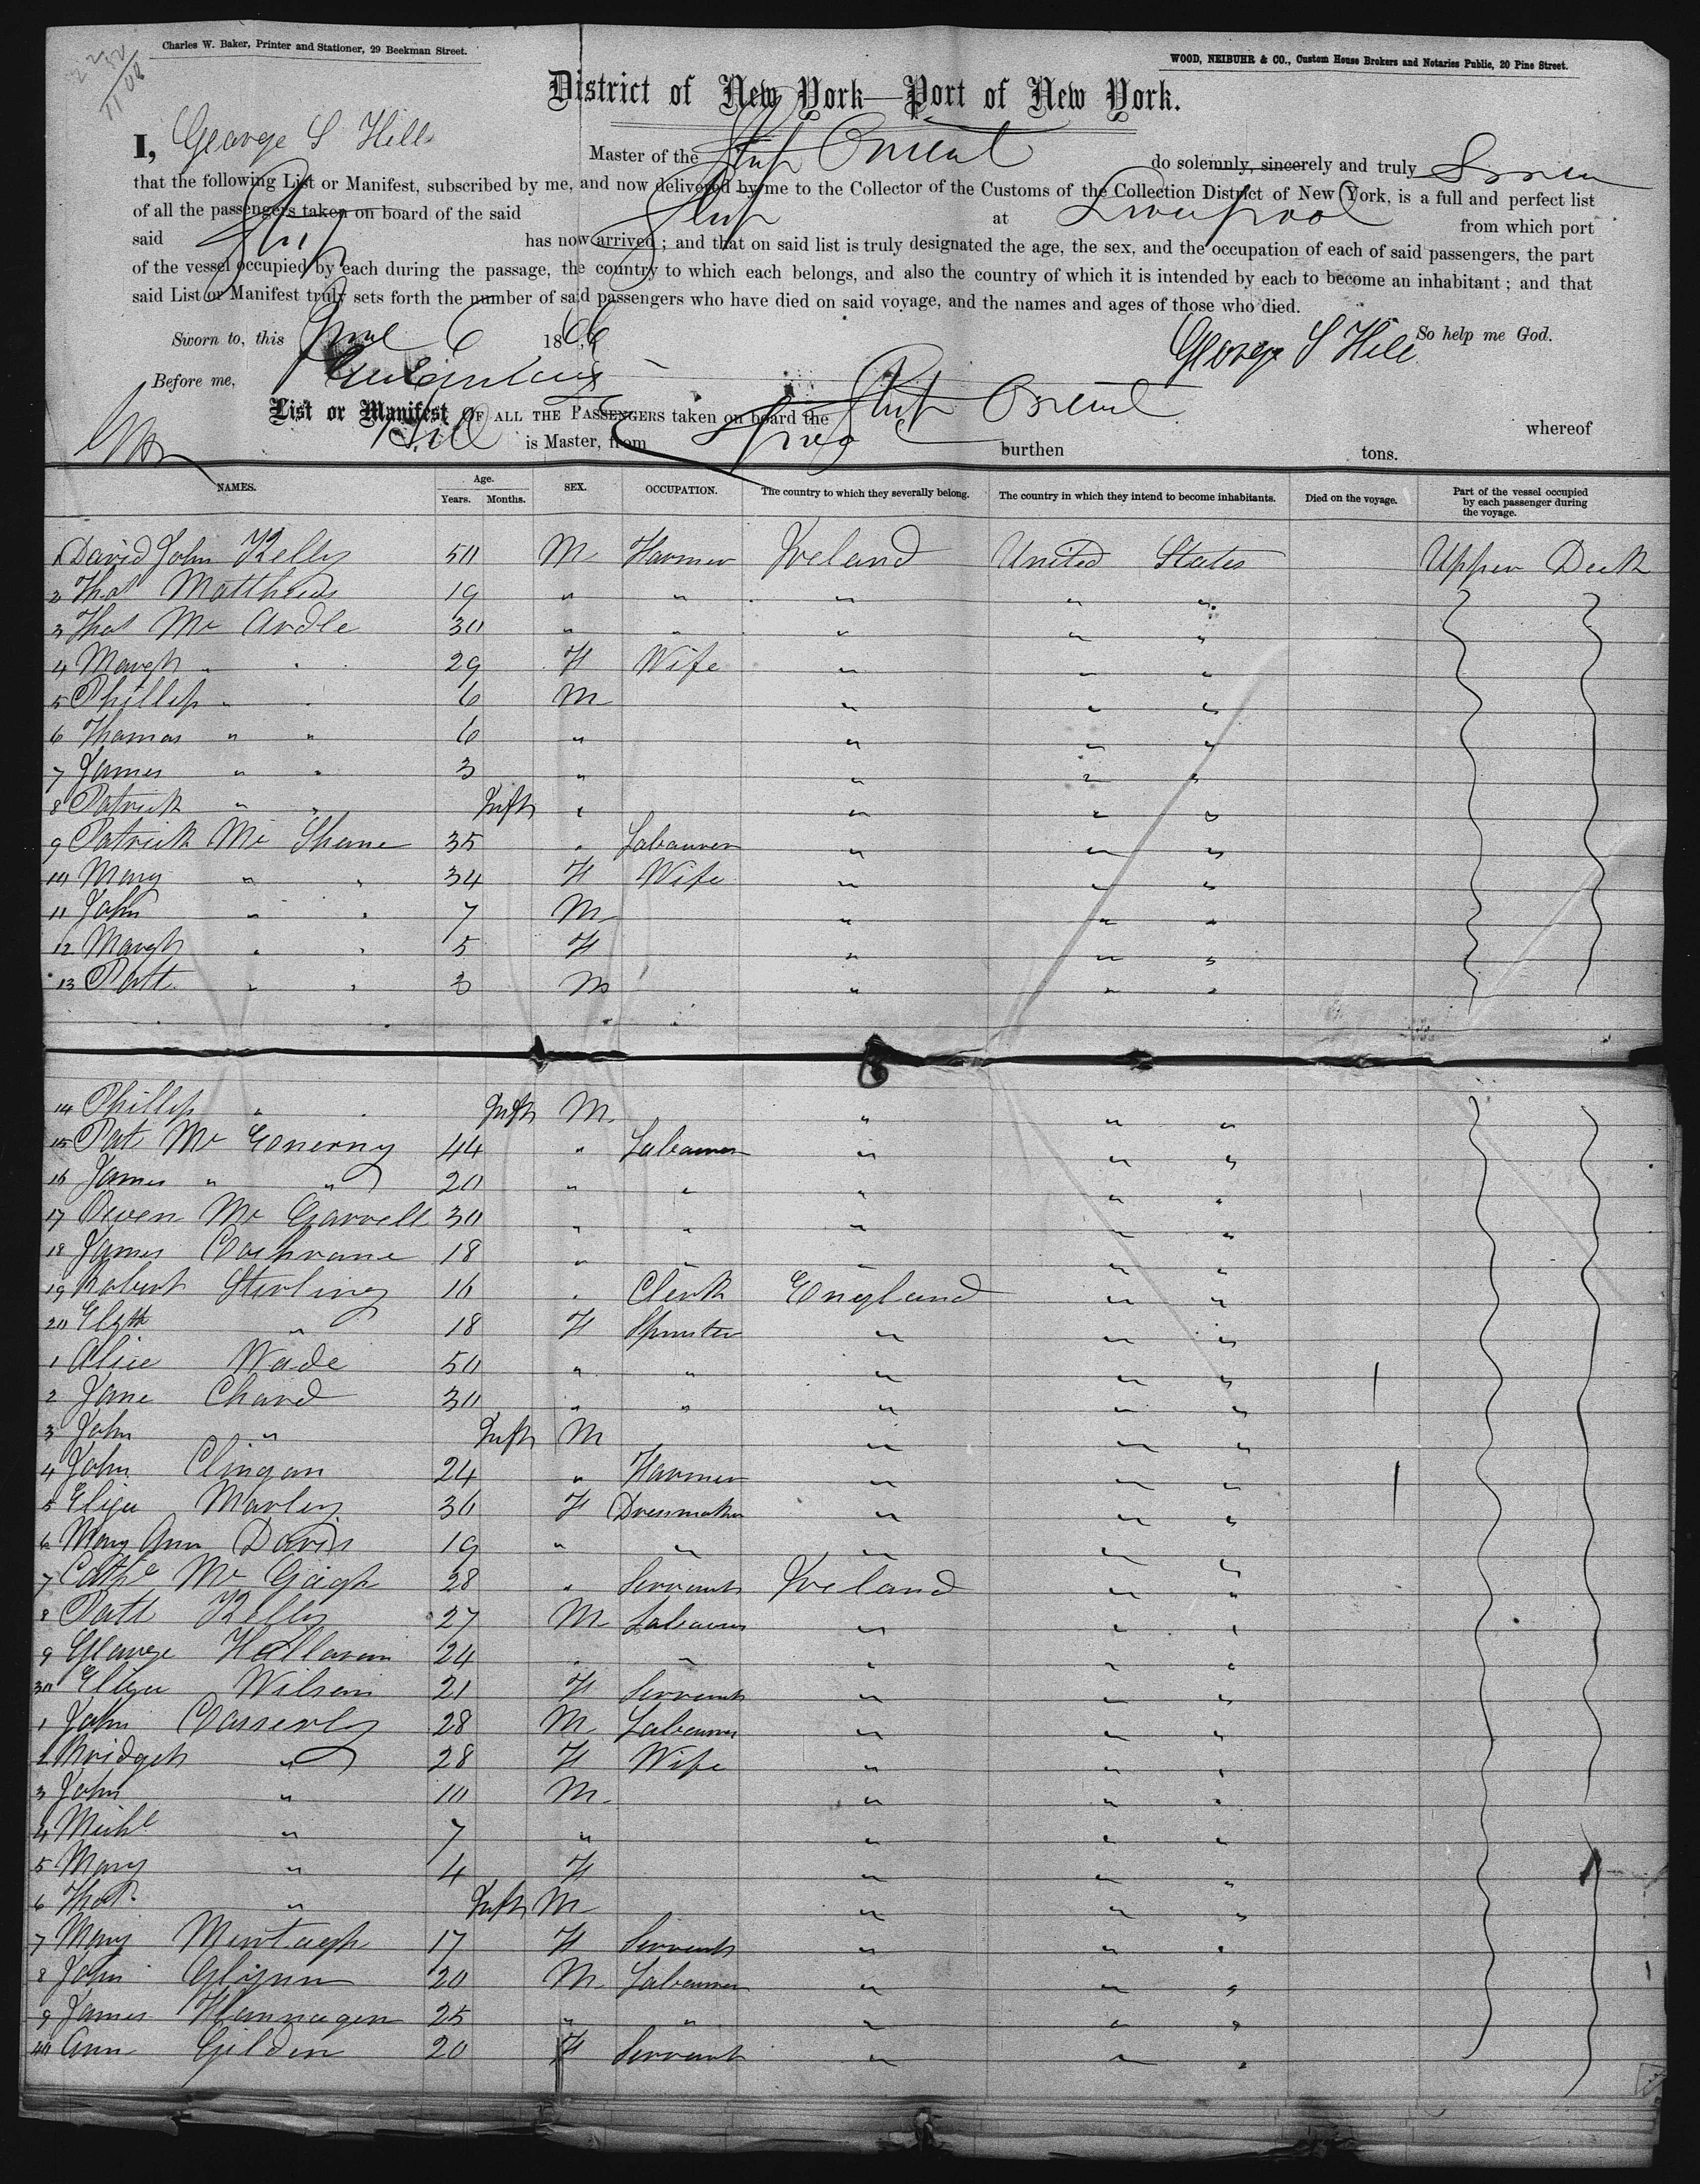 Charles W. Baker, Printer and Stationer, 29 Beekman Street.
WOOD, NEIBUHR & CO., Custom House Brokers and Notaries Public, 20 Pine Street.
District of New York—Port of New York.
I, George S Hill Master of the Ship Orient do solemnly, sincerely and truly
that the following List or Manifest, subscribed by me, and now delivered by me to the Collector of the Customs of the Collection District of New York, is a full and perfect list
of all the passengers taken on board of the said Ship at Liverpool from which port
said Ship has now arrived; and that on said list is truly designated the age, the sex, and the occupation of each of said passengers, the part
of the vessel occupied by each during the passage, the country to which each belongs, and also the country of which it is intended by each to become an inhabitant; and that
said List or Manifest truly sets forth the number of said passengers who have died on said voyage, and the names and ages of those who died.
So help me God.
Sworn to, this 6 1866 George S Hill
Before me,
List or Manifest OF ALL THE PASSENGERS taken on board the Ship Orient whereof
Hill is Master, from burthen tons.
NAMES. Age. Years. Months. SEX. OCCUPATION. The country to which they severally belong. The country in which they intend to become inhabitants. Died on the voyage. Part of the vessel occupied by each passenger during the voyage.
1 David John Kelly 50 M Farmer Ireland United States Upper Deck
2 Thos Matthews 19 " " " " "
3 Thos Mc Ardle 30 " " " " "
4 Margt " " 29 F Wife " " "
5 Phillip " " 6 M " " "
6 Thomas " " 6 " " " "
7 James " " 3 " " " "
8 Patrick " " Inft " " " "
9 Patrick Mc Shane 35 " Labourer " " "
10 Mary " " 34 F Wife " " "
11 John " " 7 M " " "
12 Margt " " 5 F " " "
13 Patt " " 3 M " " "
14 Phillip " " Inft M " " "
15 Pat Mc Enerny 44 " Labourer " " "
16 James " " 20 " " " " "
17 Owen Mc Garrell 30 " " " " "
18 James Cochrane 18 " " " " "
19 Robert Sterling 16 " Clerk England " "
20 Elizth " 18 F Spinster " " "
1 Alice Wade 50 " " " " "
2 Jane Chard 30 " " " " "
3 John " Inft M " " "
4 John Clingan 24 " Farmer " " "
5 Eliza Marley 36 F Dressmaker " " "
6 Mary Ann Davis 19 " " " " "
7 Cathe Mc 28 " Servant Ireland " "
8 Patt Kelly 27 M Labourer " " "
9 George Halloran 24 " " " " "
30 Eliza Wilson 21 F Servant " " "
1 John Casserly 28 M Labourer " " "
2 Bridget " 28 F Wife " " "
3 John " 10 M " " "
4 Michl " 7 " " " "
5 Mary " 4 F " " "
6 Thos " Inft M " " "
7 Mary Murtagh 17 F Servant " " "
8 John Glynn 20 M Labourer " " "
9 James Hannagen 25 " " " " "
40 Ann Gilden 20 F Servant " " "